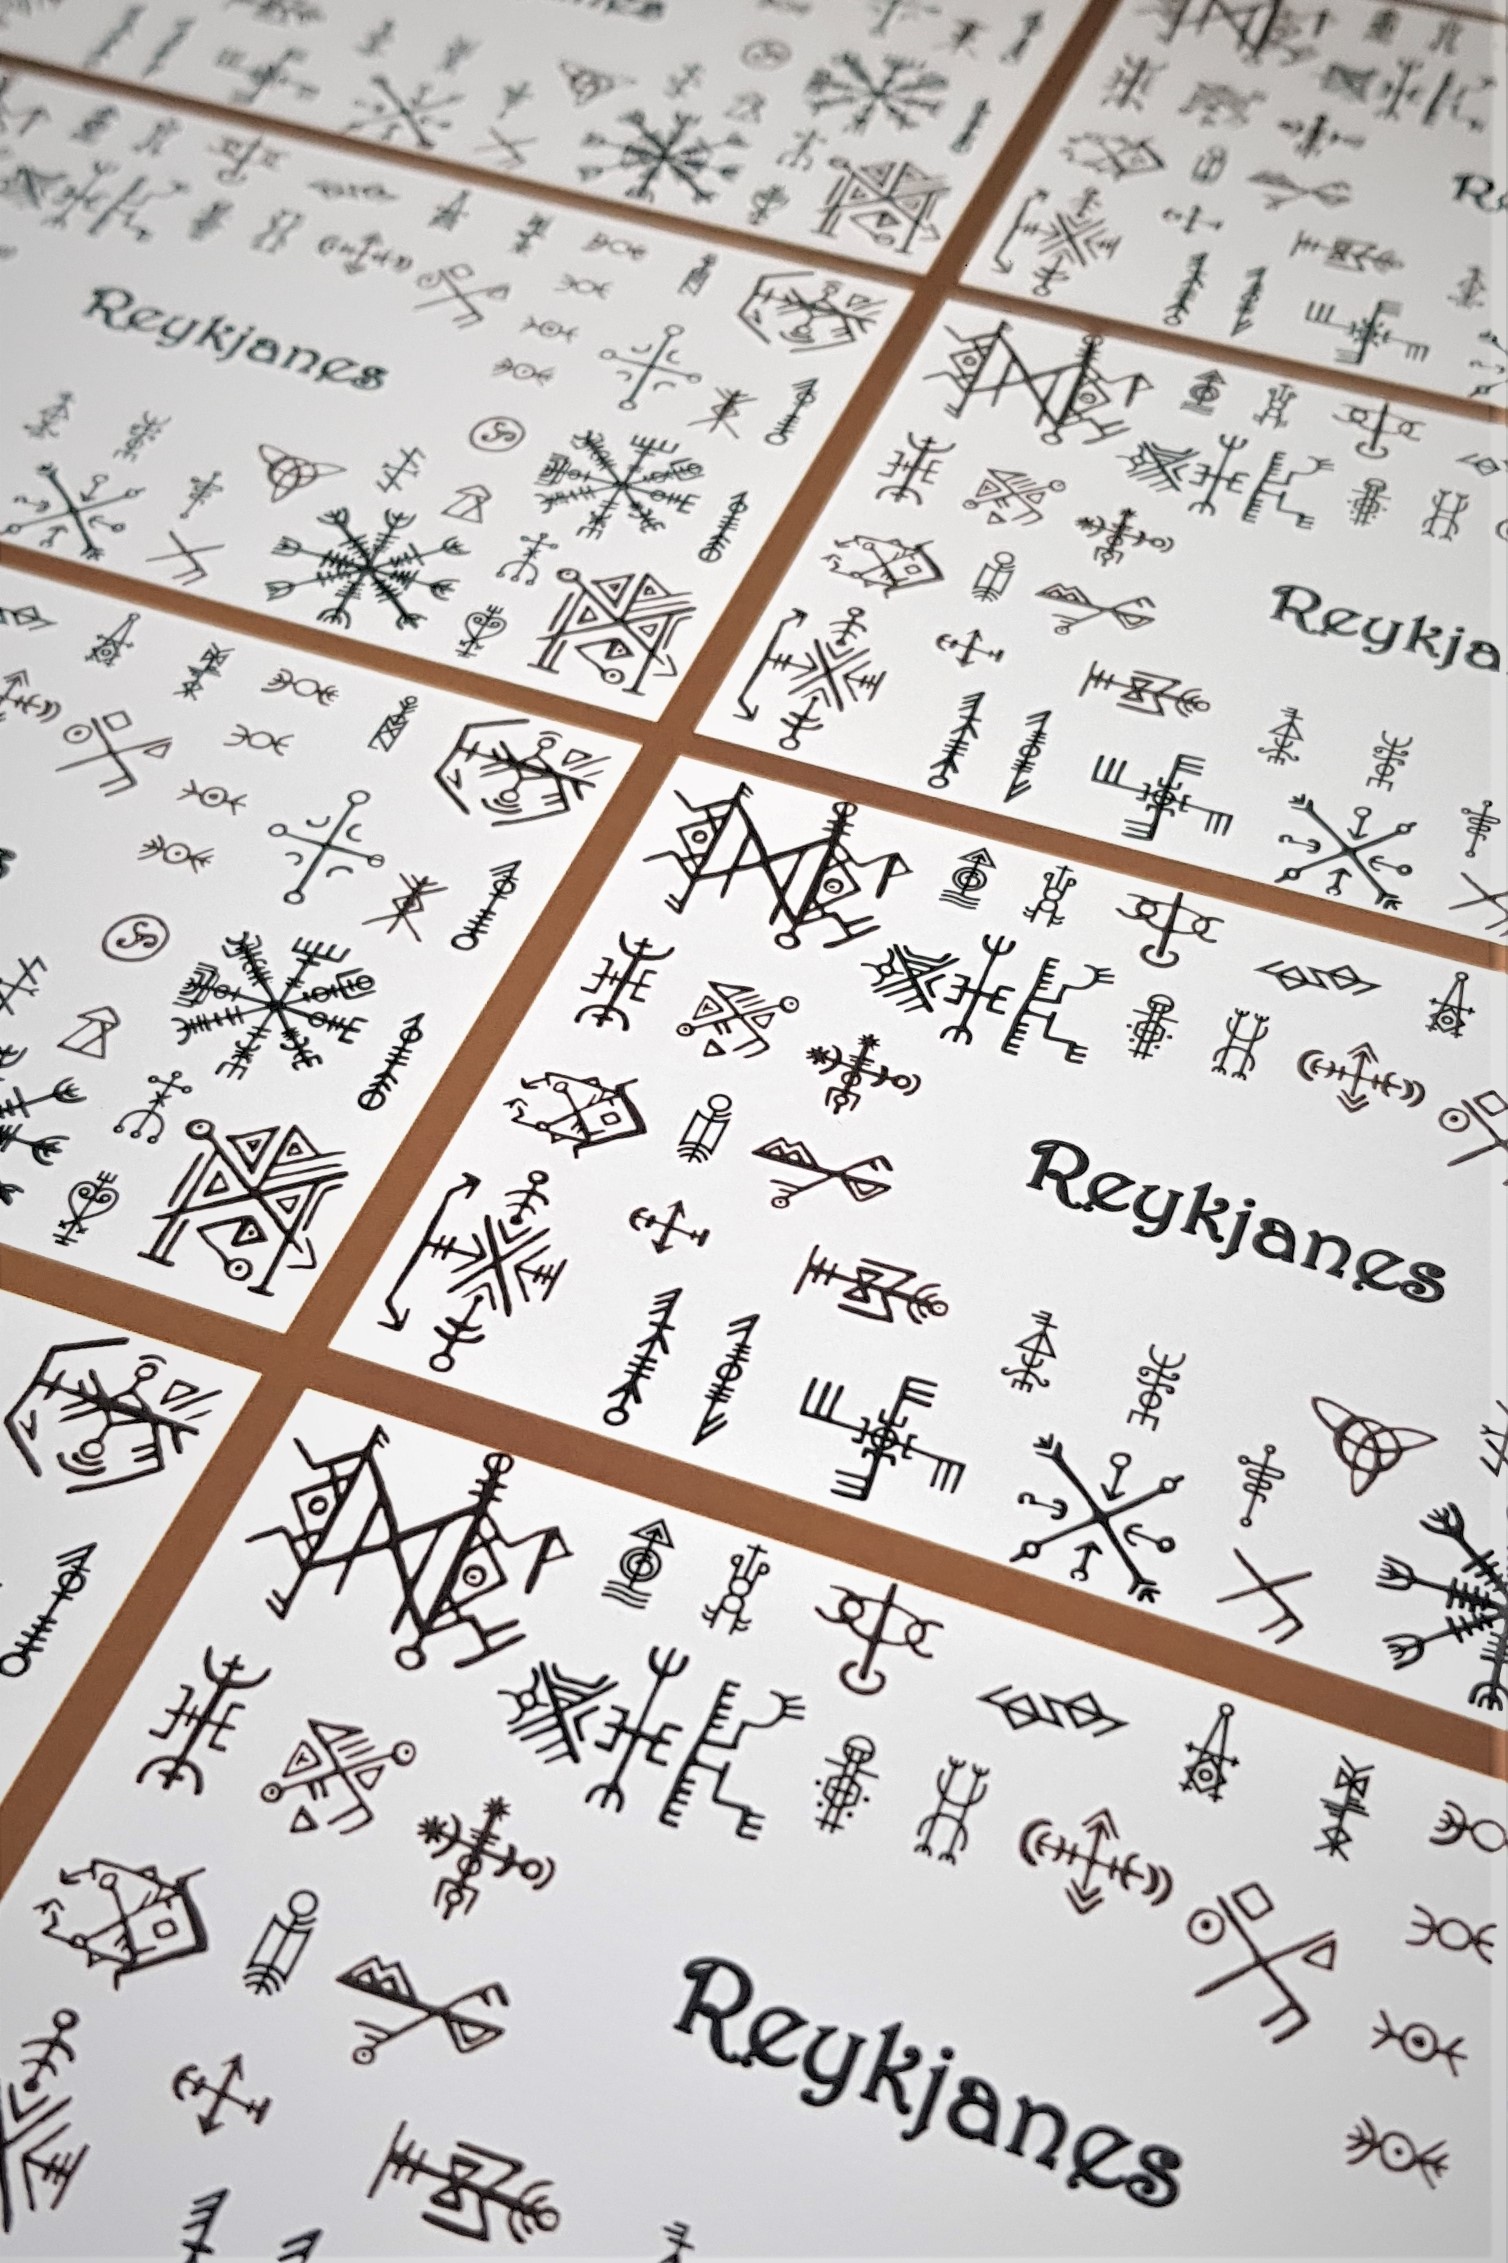 Reykjanes
Reykja
Reykjanes
Reykjanes